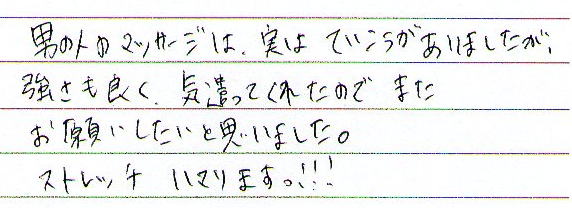 男の人のマッサージは、実は ていこうがありましたが、
強さも良く、気遣ってくれたので また
お願いしたいと思いました。
ストレッチ ハマりますっ!!!